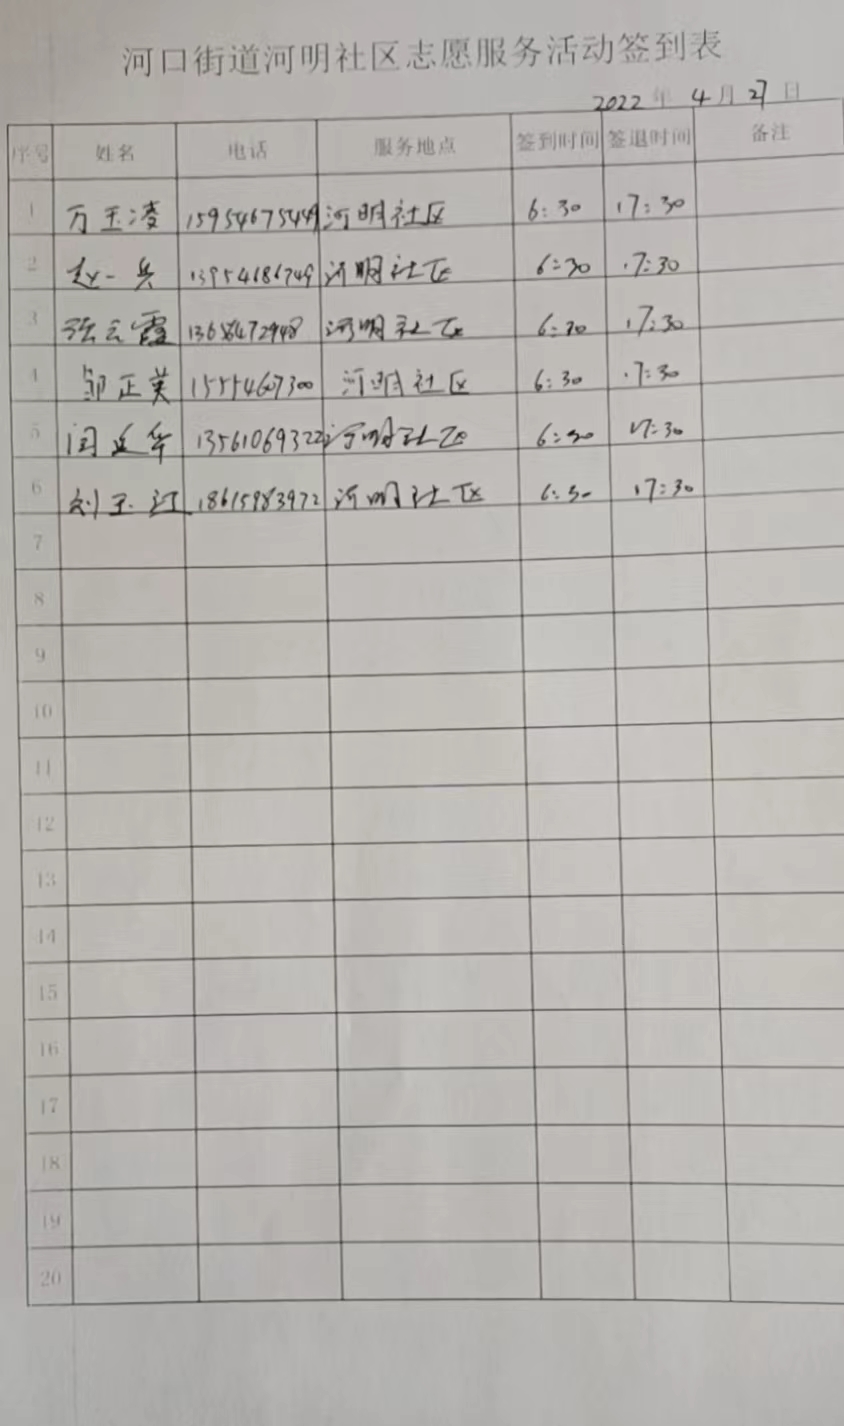 河口街道河明社区志愿服务活动签到表
2022 年 4 月 27 日
序号 姓名 电话 服务地点 签到时间 签退时间 备注
1 万玉凌 15954675449 河明社区 6:30 17:30
2 赵一兵 13954686749 河明社区 6:30 17:30
3 张云霞 河明社区 6:30 17:30
4 邹正英 河明社区 6:30 17:30
5 闫延华 13561069322 河明社区 6:30 17:30
6 刘玉江 18615983972 河明社区 6:30 17:30
7
8
9
10
11
12
13
14
15
16
17
18
19
20